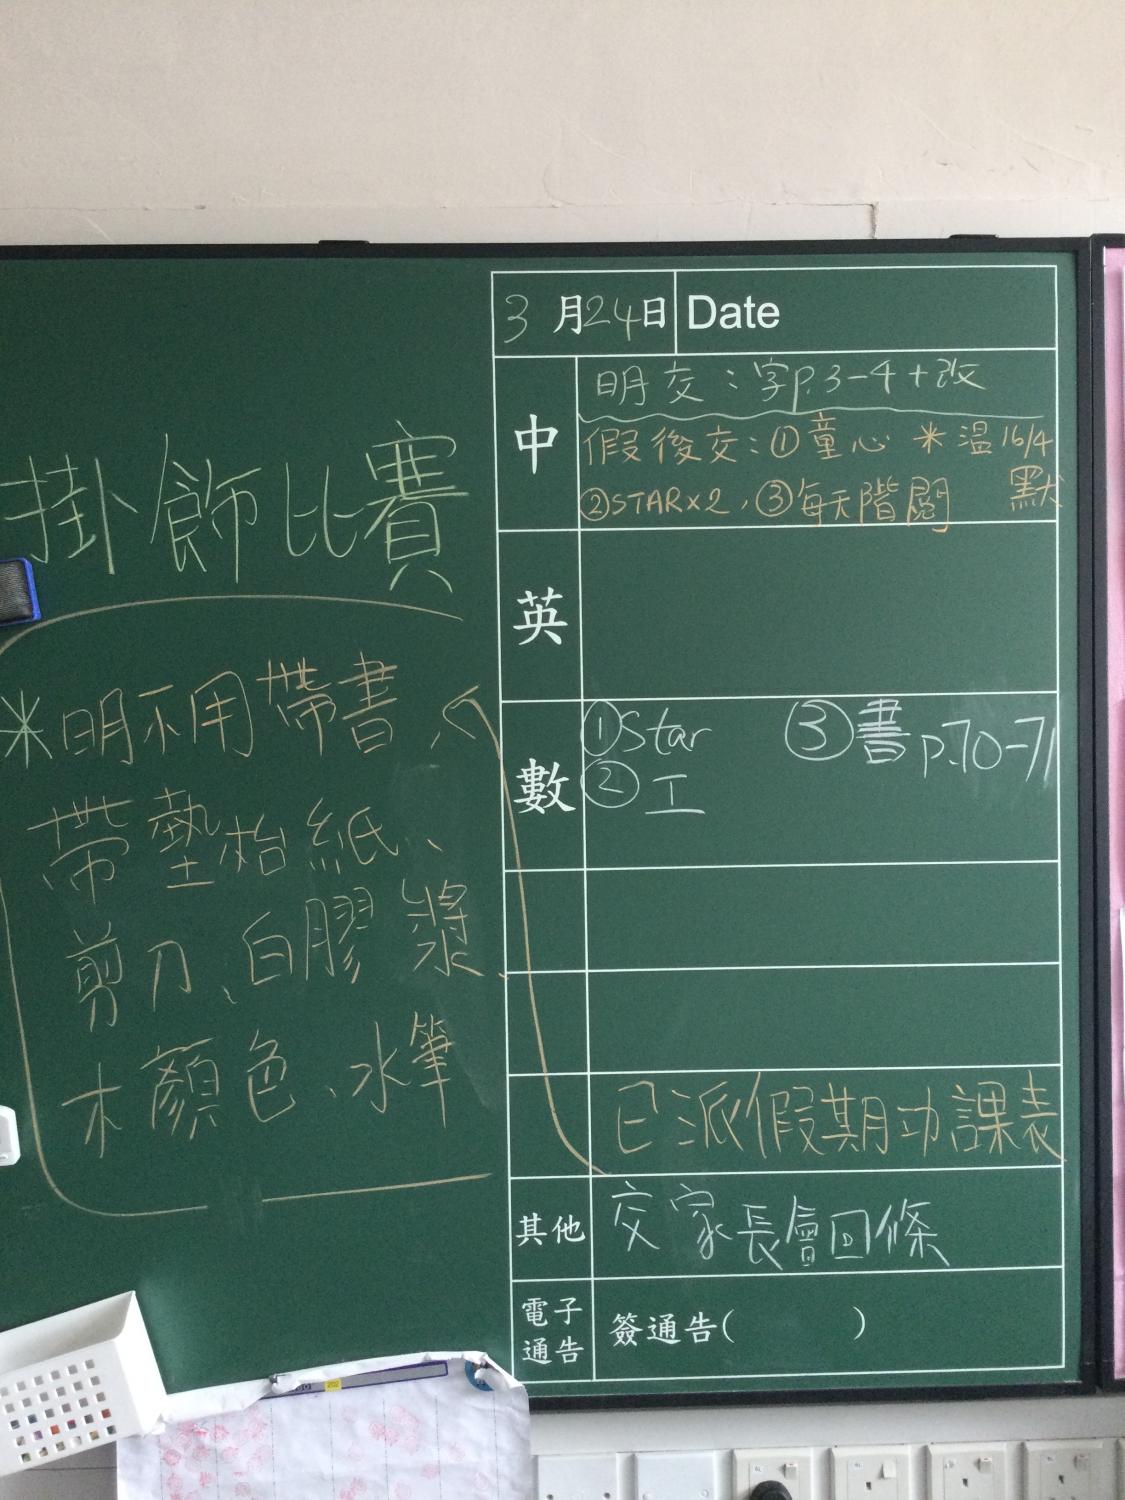 掛飾比賽
*明不用帶書、
帶墊枱紙、
剪刀、白膠漿、
木顏色、水筆
3月24日 Date
中
明交：字p.3-4+改
假後交：①童心 *溫16/4默
②STARx2，③每天階閱
英
數
①Star ③書p.70-71
②工
已派假期功課表
其他
交家長會回條
電子通告
簽通告( )